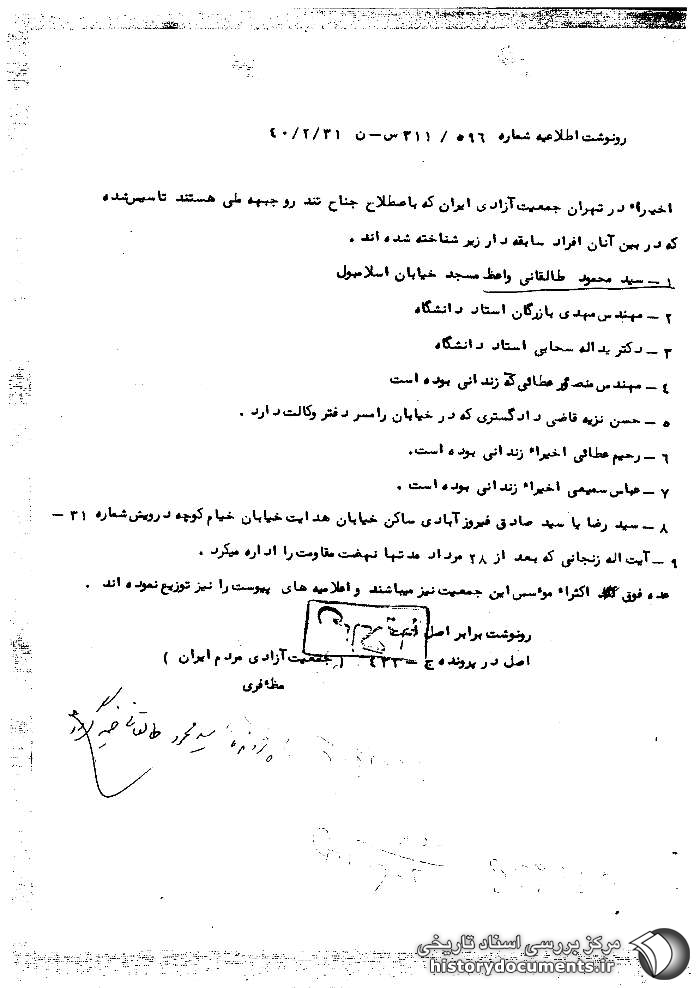 رونوشت اطلاعیه شماره ۵۹۶ / ۳۱۱ س-ن ۴۰/۲/۳۱
اخیراً در تهران جمعیت آزادی ایران که باصطلاح جناح تند رو جبهه ملی هستند تاسیس شده
که در بین آنان افراد سابقه دار زیر شناخته شده اند .
۱ - سید محمود طالقانی واعظ مسجد خیابان اسلامبول
۲ - مهندس مهدی بازرگان استاد دانشگاه
۳ - دکتر یداله سحابی استاد دانشگاه
۴ - مهندس منصور عطائی که زندانی بوده است
۵ - حسن نزیه قاضی دادگستری که در خیابان رامسر دفتر وکالت دارد .
۶ - رحیم عطائی اخیراً زندانی بوده است.
۷ - عباس سمیعی اخیراً زندانی بوده است .
۸ - سید رضا یا سید صادق فیروزآبادی ساکن خیابان هدایت خیابان خیام کوچه درویش شماره ۳۱ -
۹ - آیت اله زنجانی که بعد از ۲۸ مرداد مدتها نهضت مقاومت را اداره میکرد .
عده فوق اکثراً موسس این جمعیت نیز میباشند و اعلامیه های پیوست را نیز توزیع نموده اند .
رونوشت برابر اصل است
اصل در پرونده ج - ۴۳۳ ( جمعیت آزادی مردم ایران )
مظفری
سید محمود طالقانی
مرکز بررسی اسناد تاریخی
historydocuments.ir